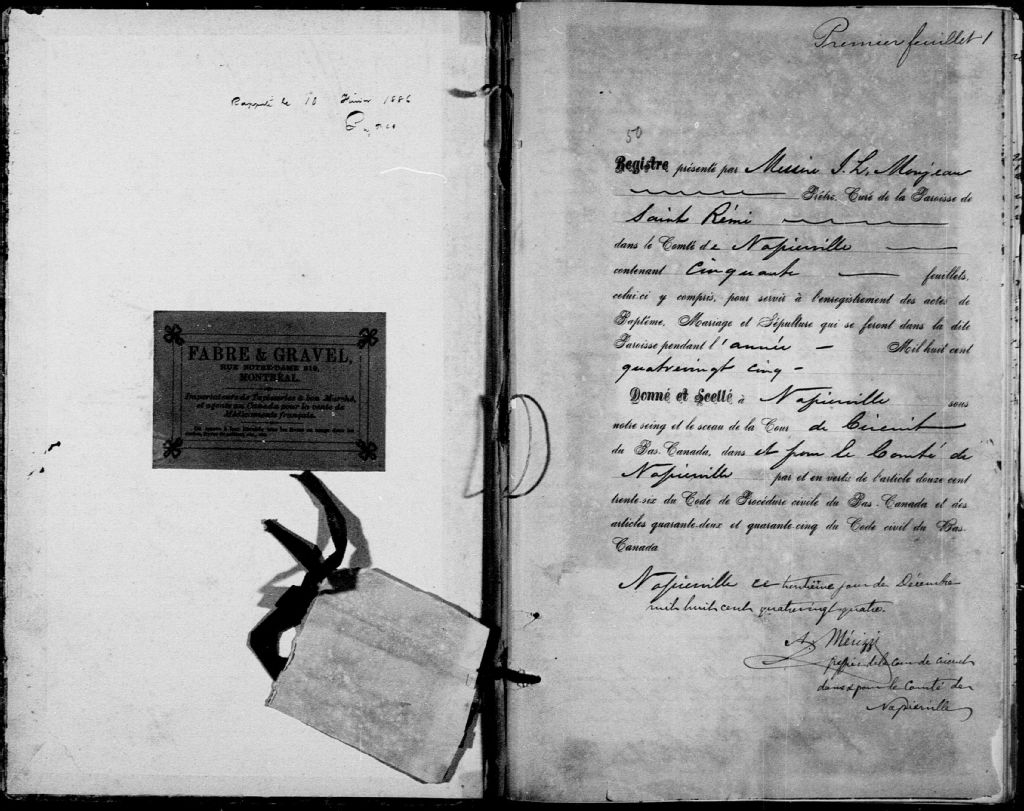 Rapporté le 10 Février 1886
FABRE & GRAVEL,
RUE NOTRE-DAME 219,
MONTRÉAL.
Importateurs de Tapisseries à bon Marché,
et agents au Canada pour la vente de
Médicaments français.
Premier feuillet 1
50
Registre présenté par Messire J. L. Monjeau
Prêtre, Curé de la Paroisse de
Saint Rémi
dans le Comté de Napierville
contenant Cinquante feuillets,
celui-ci y compris, pour servir à l'enregistrement des actes de
Baptême, Mariage et Sépulture qui se feront dans la dite
Paroisse pendant l'année Mil huit cent
quatrevingt cinq -
Donné et Scellé à Napierville sous
notre seing et le sceau de la Cour de Circuit
du Bas-Canada, dans et pour le Comté de
Napierville par et en vertu de l'article douze cent
trente-six du Code de Procédure civile du Bas-Canada et des
articles quarante-deux et quarante-cinq du Code civil du Bas-
Canada
Napierville ce trentième jour de Décembre
mil huit cent quatrevingt quatre.
A. Mérizzi
greffier de la Cour de Circuit
dans & pour le Comté de
Napierville